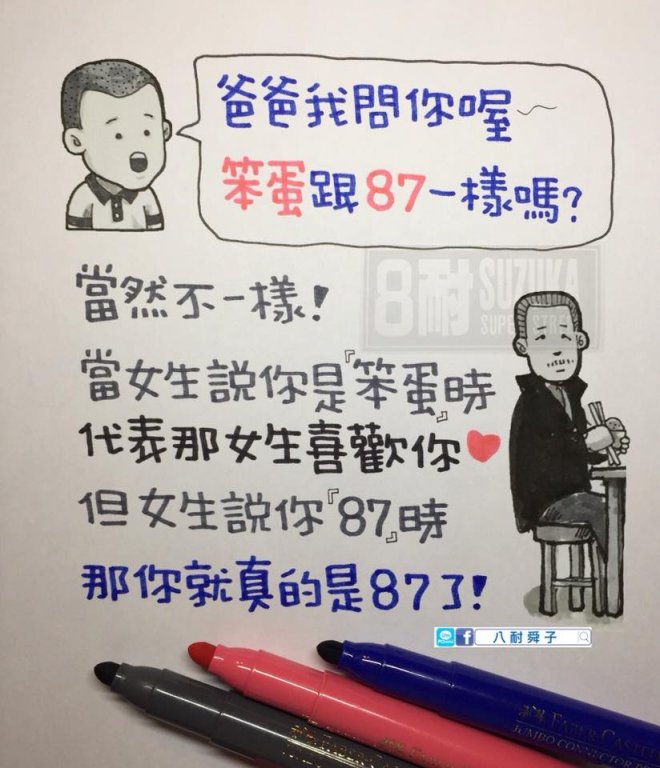 爸爸我問你喔~
笨蛋跟87一樣嗎?
8耐 SUZUKA
當然不一樣!
當女生說你是『笨蛋』時
代表那女生喜歡你
但女生說你『87』時
那你就真的是87了!
八耐舜子
FABER CASTELL
JUMBO CONNECTOR PEN